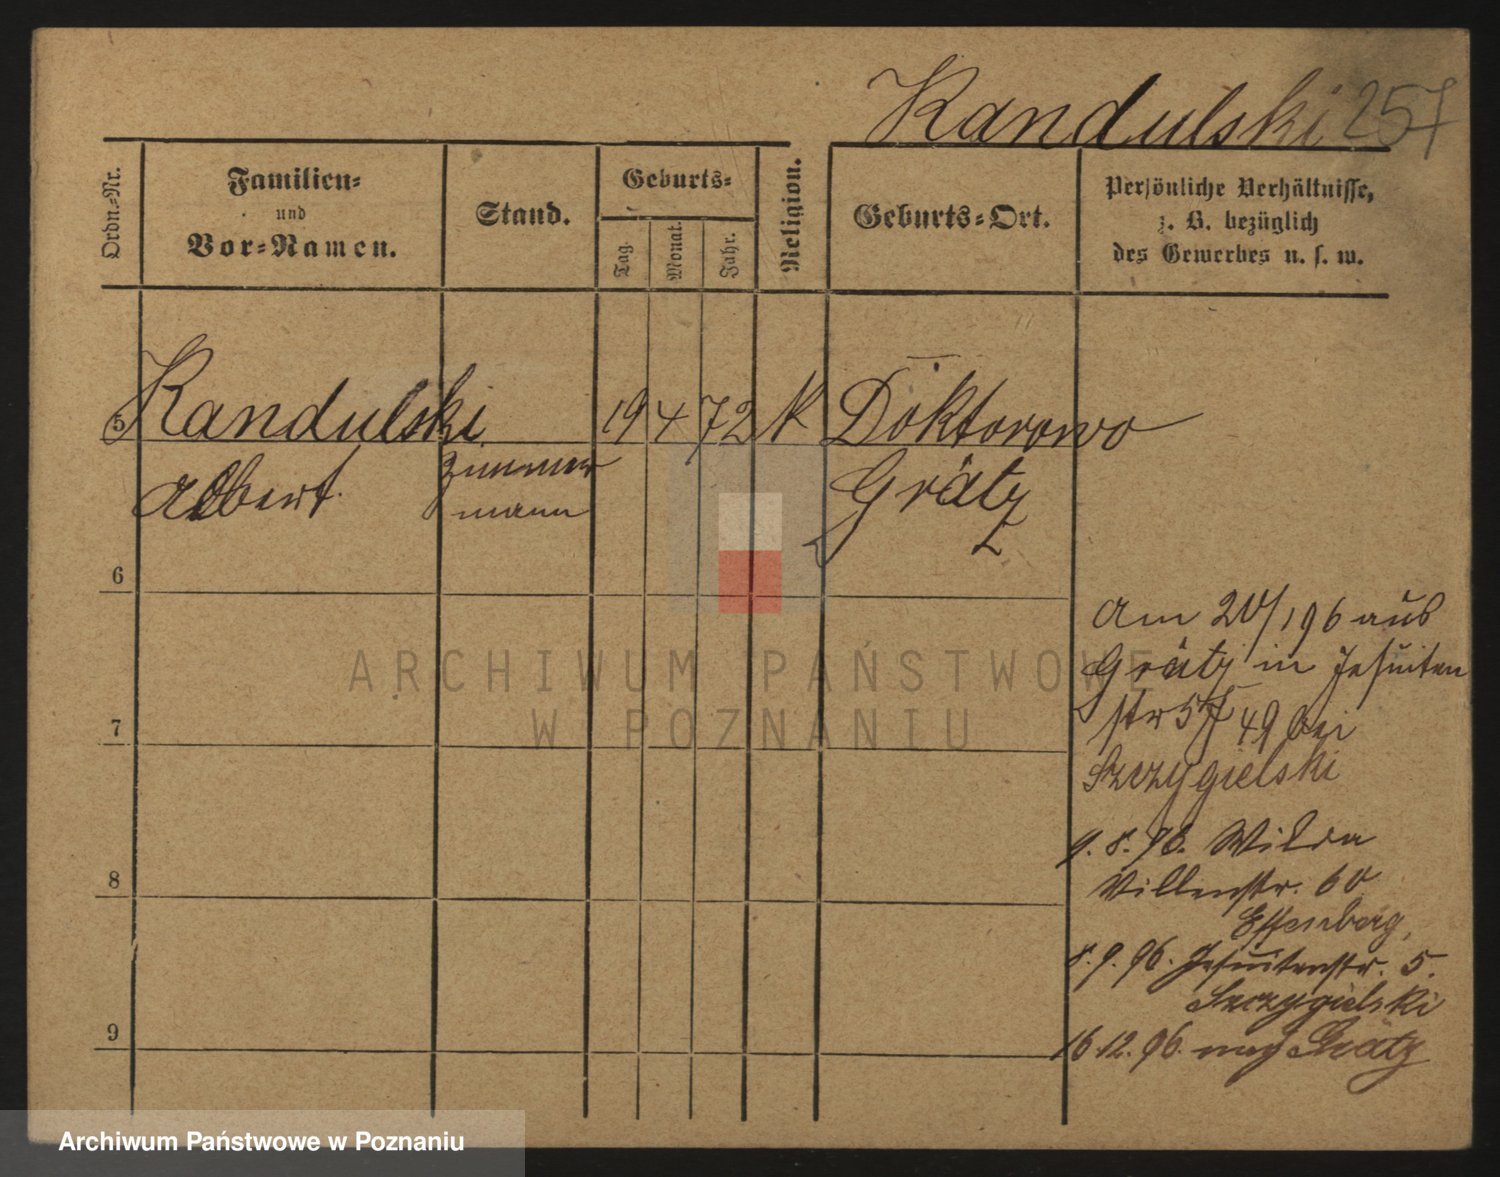 Kandulski 257
Ordn.-Nr.
Familien-
und
Vor-Namen.
Stand.
Geburts-
Tag.
Monat.
Jahr.
Religion.
Geburts-Ort.
Persönliche Verhältnisse,
z. B. bezüglich
des Gewerbes u. s. w.
5 Kandulski 19 4 72 K Doktorowo
Albert Zimmer Grätz
mann
6
Am 20/1 96 aus
Grätz in Jesuiten
str 5 49 bei
Szczygielski
7
9. 8. 96. Wilda
Villenstr. 60
8
8. 9. 96. Jesuitenstr. 5.
Szczygielski
9
16.12. 96. nach Grätz
ARCHIWUM PAŃSTWOWE
W POZNANIU
Archiwum Państwowe w Poznaniu